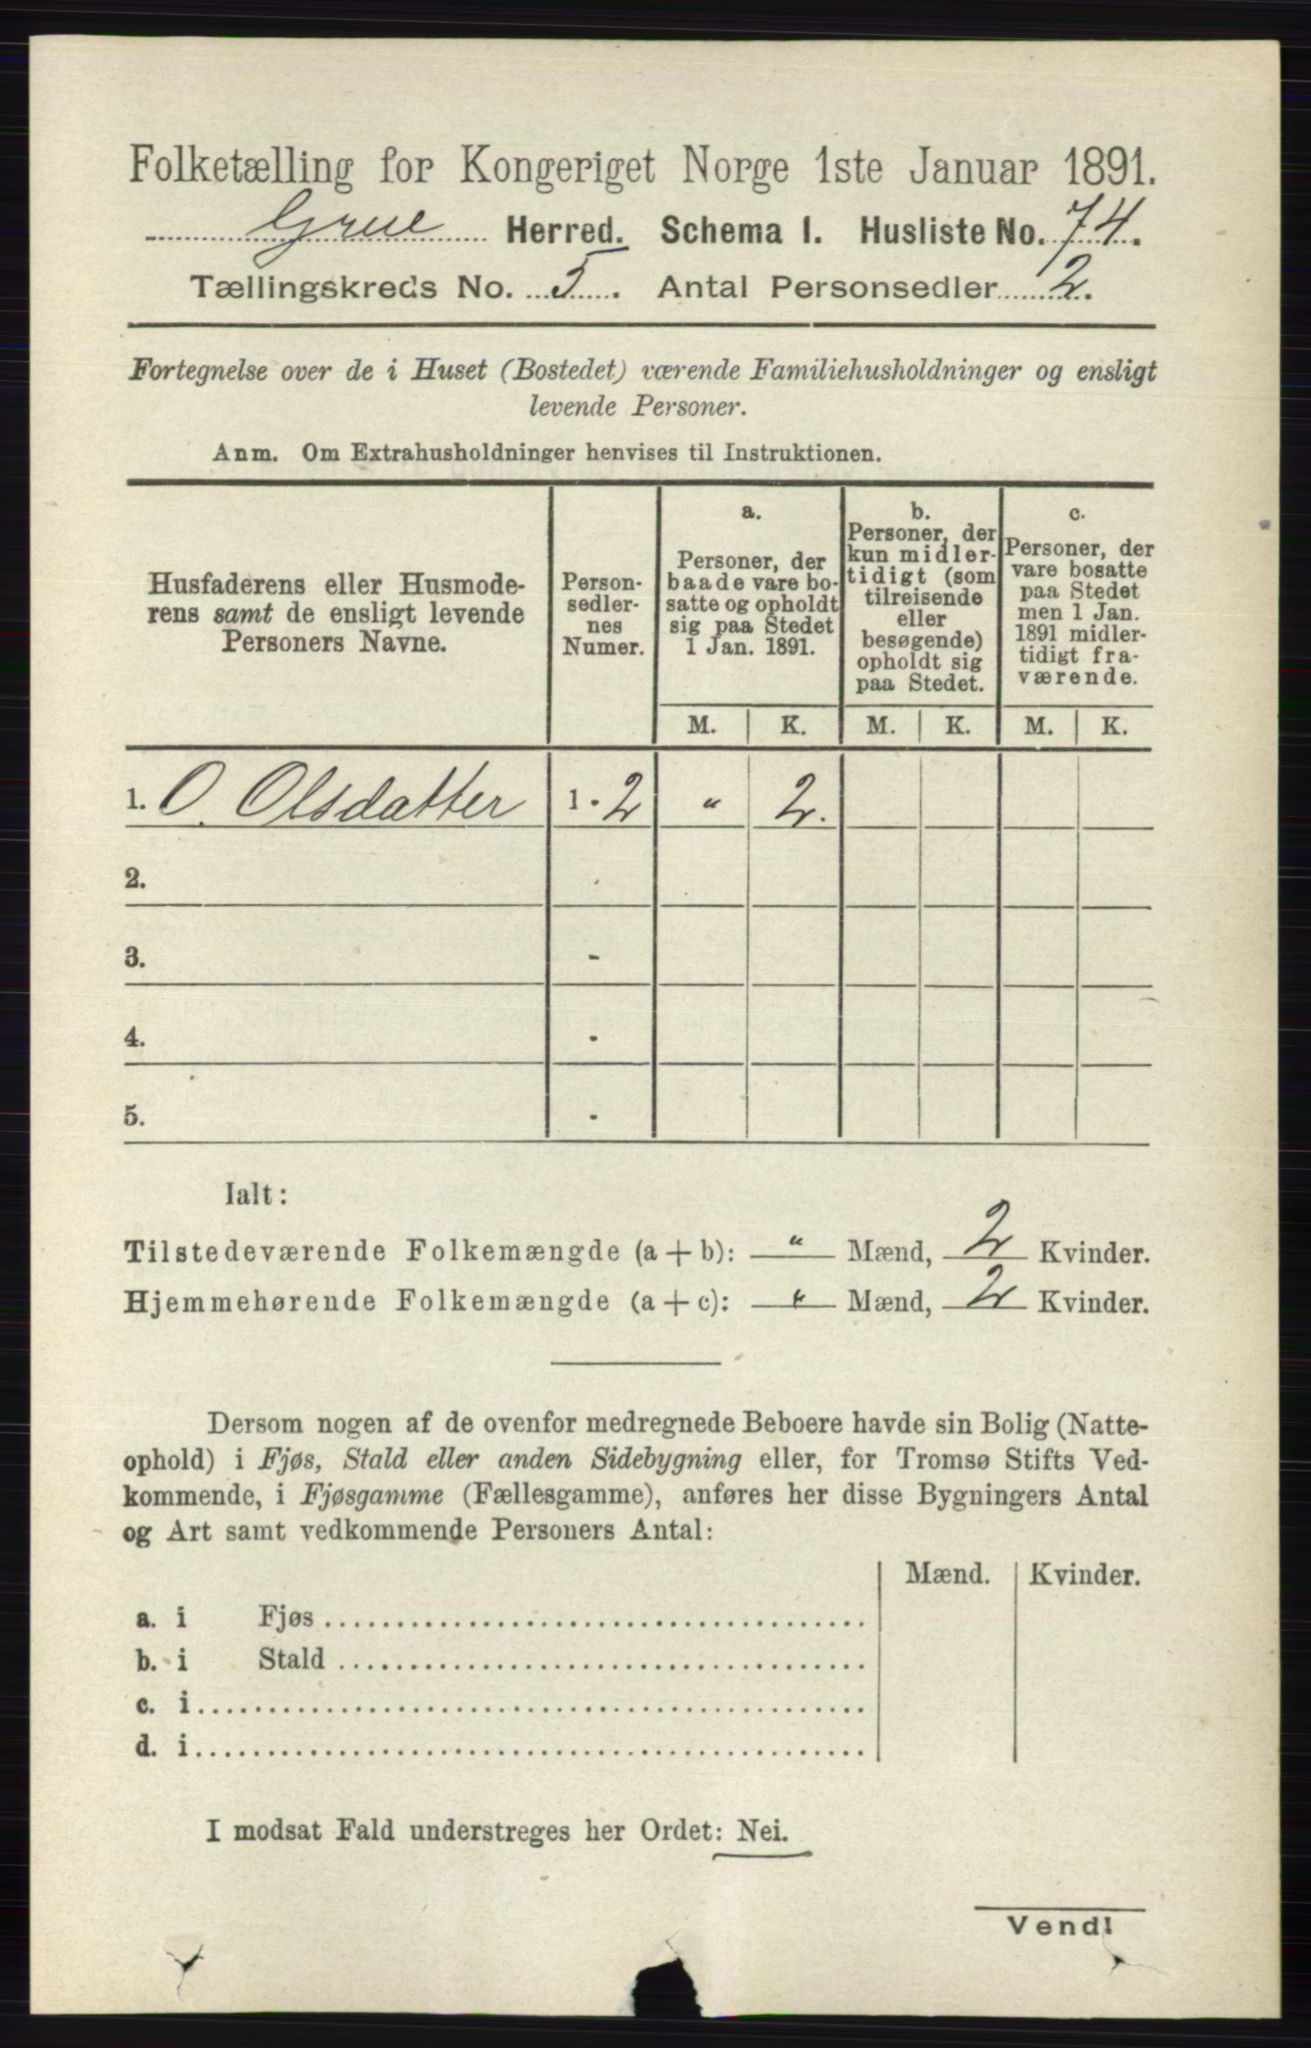 Folketælling for Kongeriget Norge 1ste Januar 1891.
Grue Herred. Schema I. Husliste No. 74.
Tællingskreds No. 5. Antal Personsedler 2.
Fortegnelse over de i Huset (Bostedet) værende Familiehusholdninger og ensligt
levende Personer.
Anm. Om Extrahusholdninger henvises til Instruktionen.
Husfaderens eller Husmode-
rens samt de ensligt levende
Personers Navne.
Person-
sedler-
nes
Numer.
a.
Personer, der
baade vare bo-
satte og opholdt
sig paa Stedet
1 Jan. 1891.
b.
Personer, der
kun midler-
tidigt (som
tilreisende
eller
besøgende)
opholdt sig
paa Stedet.
c.
Personer, der
vare bosatte
paa Stedet
men 1 Jan.
1891 midler-
tidigt fra-
værende.
M. K. M. K. M. K.
1. O. Olsdatter 1 - 2 " 2.
2.
3. -
4. -
5. -
Ialt:
Tilstedeværende Folkemængde (a + b): " Mænd, 2 Kvinder.
Hjemmehørende Folkemængde (a + c): " Mænd, 2 Kvinder.
Dersom nogen af de ovenfor medregnede Beboere havde sin Bolig (Natte-
ophold) i Fjøs, Stald eller anden Sidebygning eller, for Tromsø Stifts Ved-
kommende, i Fjøsgamme (Fællesgamme), anføres her disse Bygningers Antal
og Art samt vedkommende Personers Antal:
Mænd. Kvinder.
a. i Fjøs
b. i Stald
c. i
d. i
I modsat Fald understreges her Ordet: Nei.
Vend!